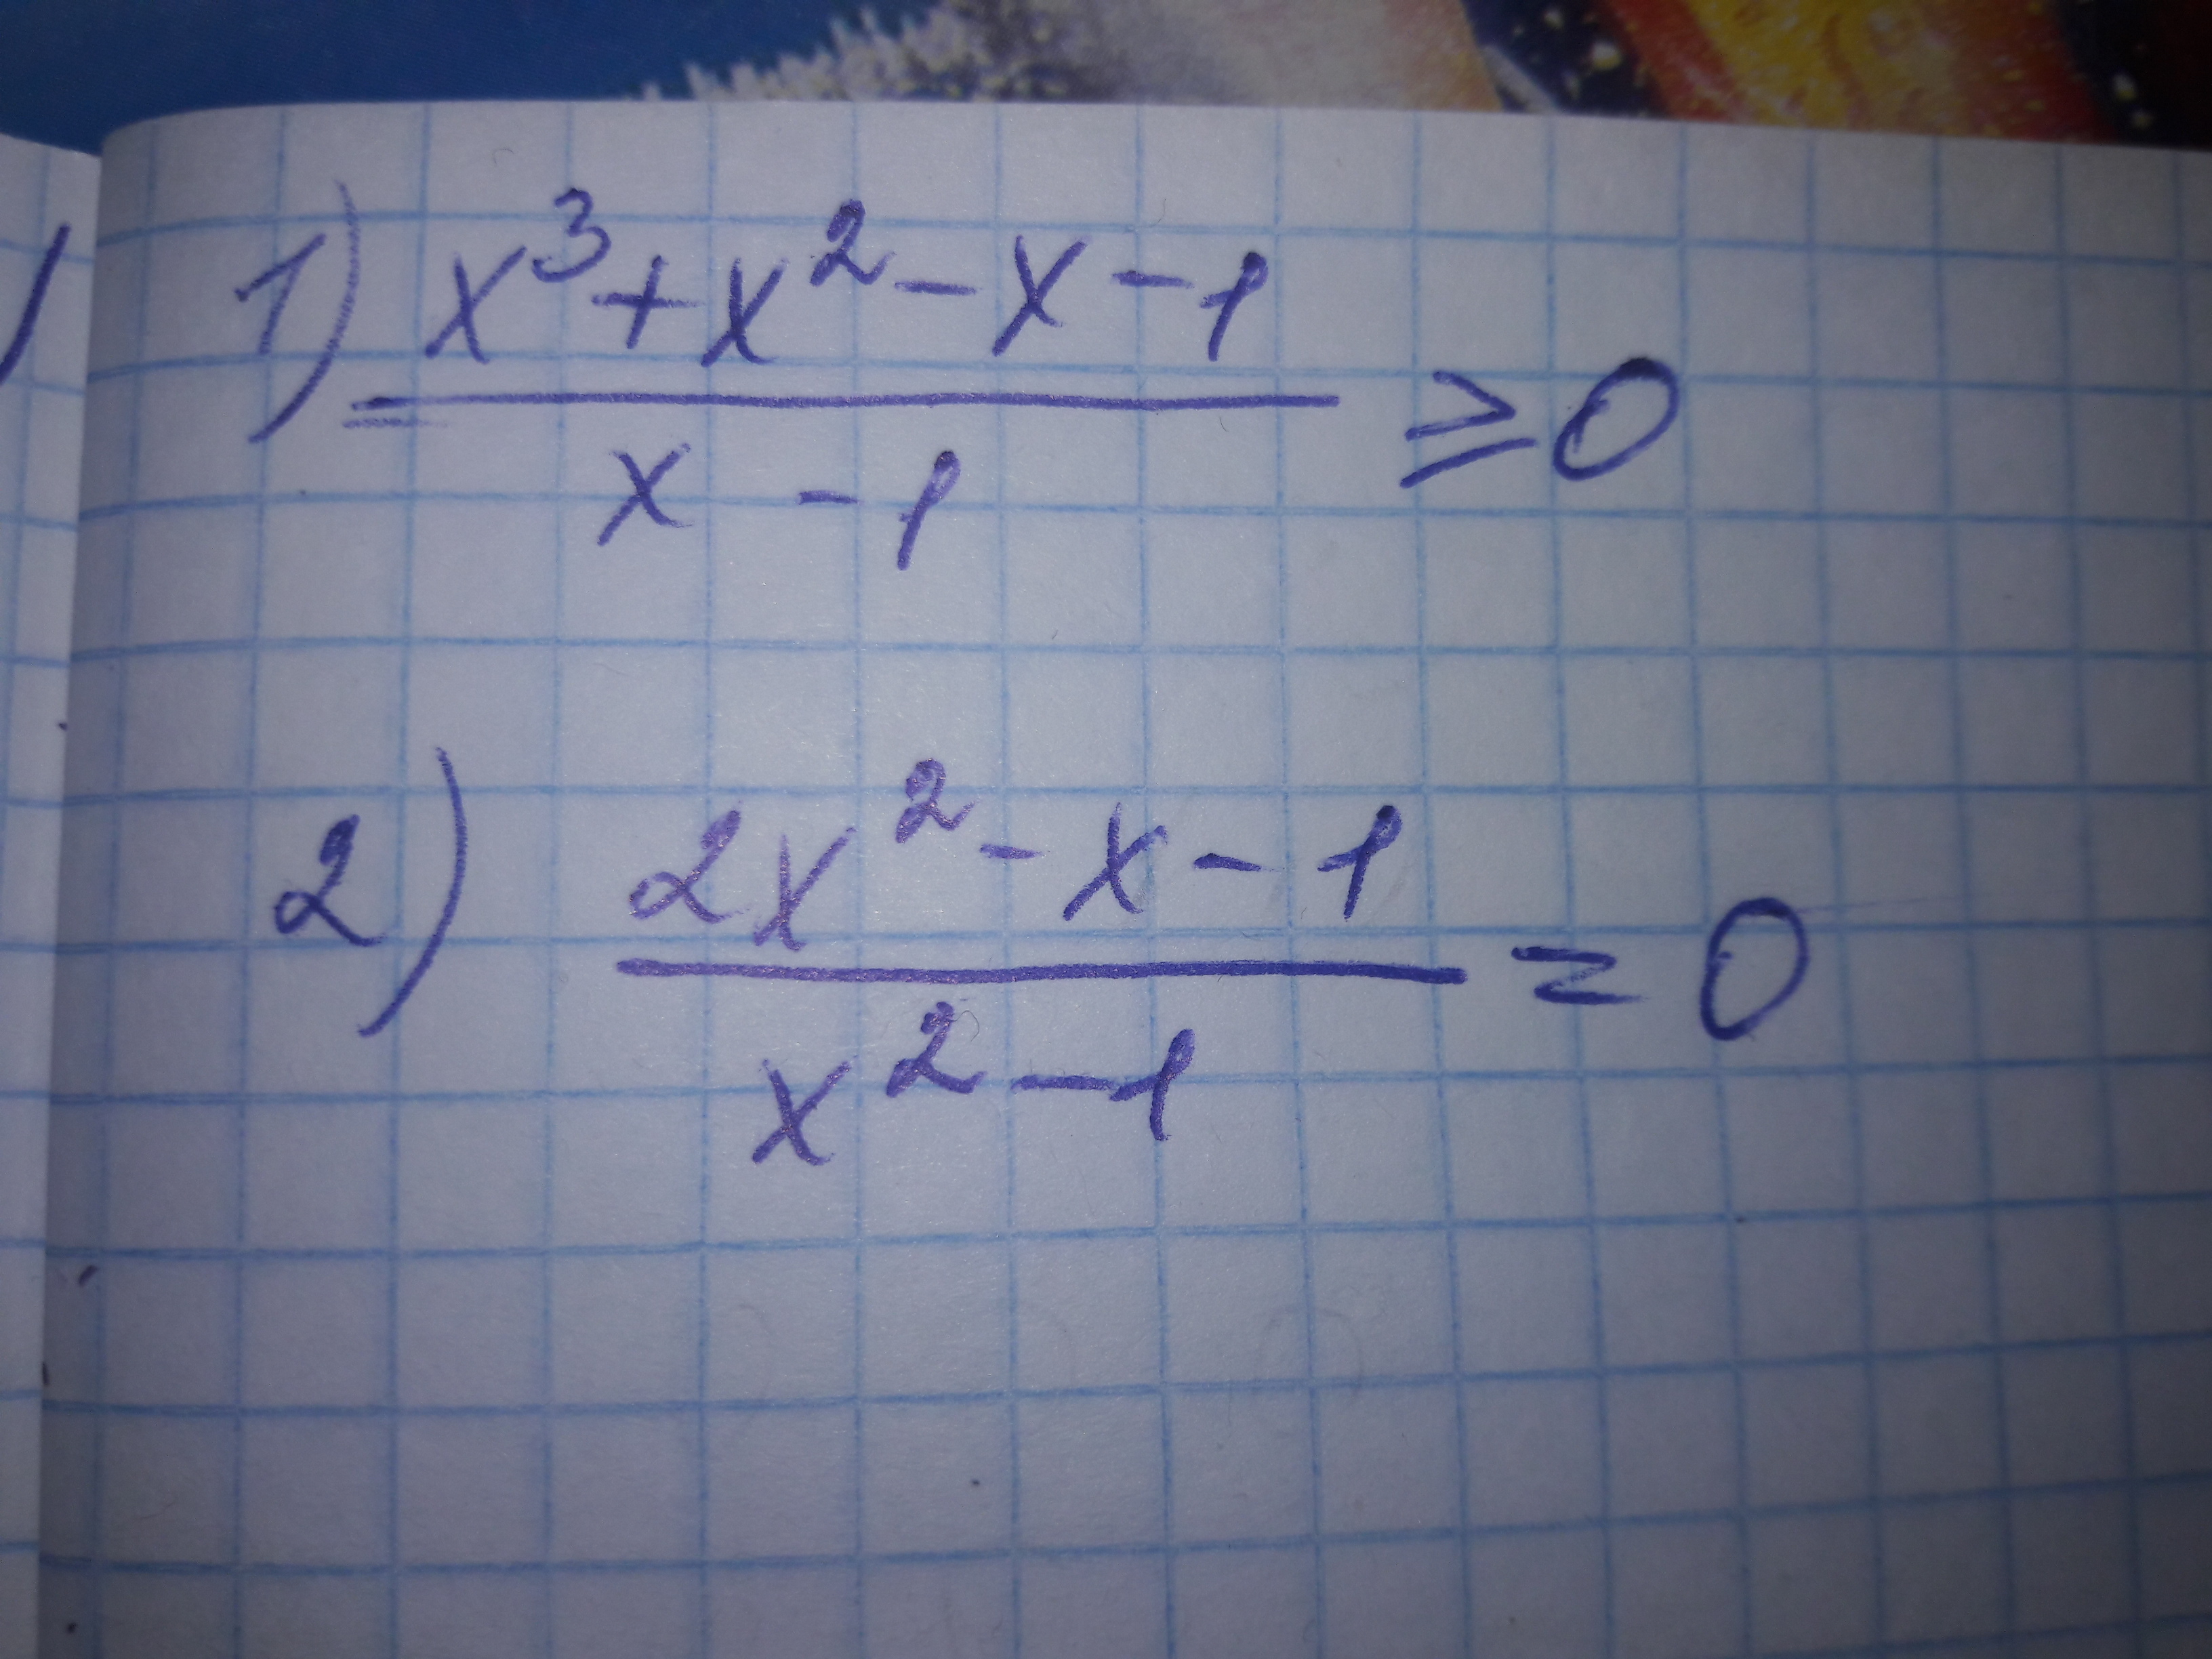 1) x³+x²-x-1
x -1
≥0
2) 2x²-x-1
x²-1
=0